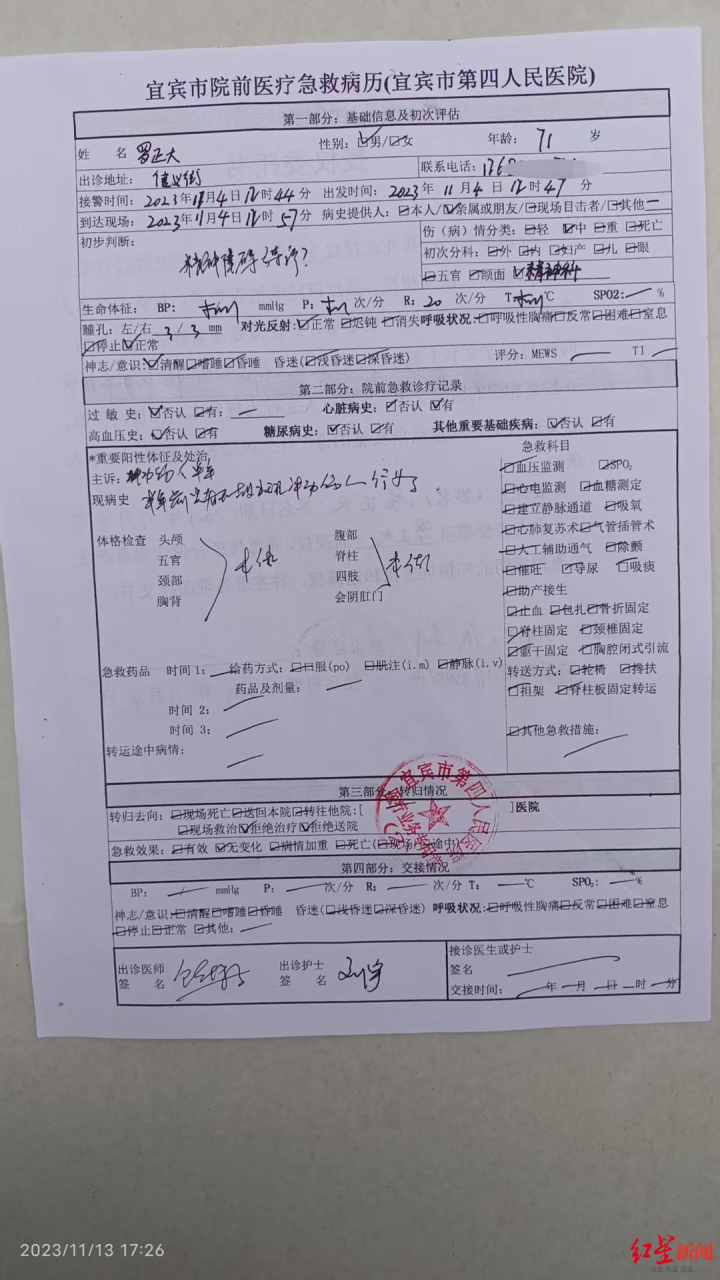 宜宾市院前医疗急救病历(宜宾市第四人民医院)
第一部分：基础信息及初次评估
姓 名 罗正大 性别：☑男/□女 年龄：71 岁
出诊地址：信义街 联系电话：
接警时间：2023年11月4日12时44分 出发时间：2023年11月4日12时47分
到达现场：2023年11月4日12时57分 病史提供人：□本人/☑亲属或朋友/□现场目击者/□其他
初步判断： 伤（病）情分类：□轻 ☑中 □重 □死亡
精神障碍待诊？ 初次分科：□外 □内 □妇产 □儿 □眼
□五官 □颜面 ☑精神科
生命体征： BP: mmHg P: 次/分 R: 20 次/分 T: ℃ SPO2: %
瞳孔：左/右 3/3 mm 对光反射：☑正常 □迟钝 □消失 呼吸状况：□呼吸性胸痛□反常□困难□窒息
□停止☑正常
神志/意识：☑清醒□嗜睡□昏睡 昏迷(□浅昏迷□深昏迷) 评分：MEWS TI
第二部分：院前急救诊疗记录
过 敏 史：☑否认□有： 心脏病史：□否认 ☑有
高血压史：☑否认 □有 糖尿病史：☑否认 □有 其他重要基础疾病：☑否认 □有
*重要阳性体征及处治 急救科目
主诉：冲动伤人半年
现病史
□血压监测 □SPO₂
□心电监测 □血糖测定
□建立静脉通道 □吸氧
□心肺复苏术□气管插管术
□人工辅助通气 □除颤
□催吐 □导尿 □吸痰
□助产接生
□止血 □包扎□骨折固定
□脊柱固定 □颈椎固定
□躯干固定 □胸腔闭式引流
转送方式：□轮椅 □搀扶
□担架 □脊柱板固定转运
□其他急救措施：
体格检查 头颅 腹部
五官 脊柱
颈部 四肢
胸背 会阴肛门
急救药品 时间1： 给药方式：□口服(po) □肌注(i.m) □静脉(i.v)
药品及剂量：
时间 2：
时间 3：
转运途中病情：
第三部分：转归情况
转归去向：□现场死亡□送回本院□转往他院:[ ]医院
□现场救治☑拒绝治疗☑拒绝送院
急救效果：□有效 ☑无变化 □病情加重 □死亡(□现场/□途中)
宜宾市第四人民医院
第四部分：交接情况
BP: mmHg P: 次/分 R: 次/分 T: ℃ SPO₂: %
神志/意识:□清醒□嗜睡□昏睡 昏迷(□浅昏迷□深昏迷) 呼吸状况:□呼吸性胸痛□反常□困难□窒息
□停止□正常 □其他：
出诊医师 出诊护士 接诊医生或护士
签 名 签 名 签名
交接时间： 年 月 日 时 分
2023/11/13 17:26
红星新闻